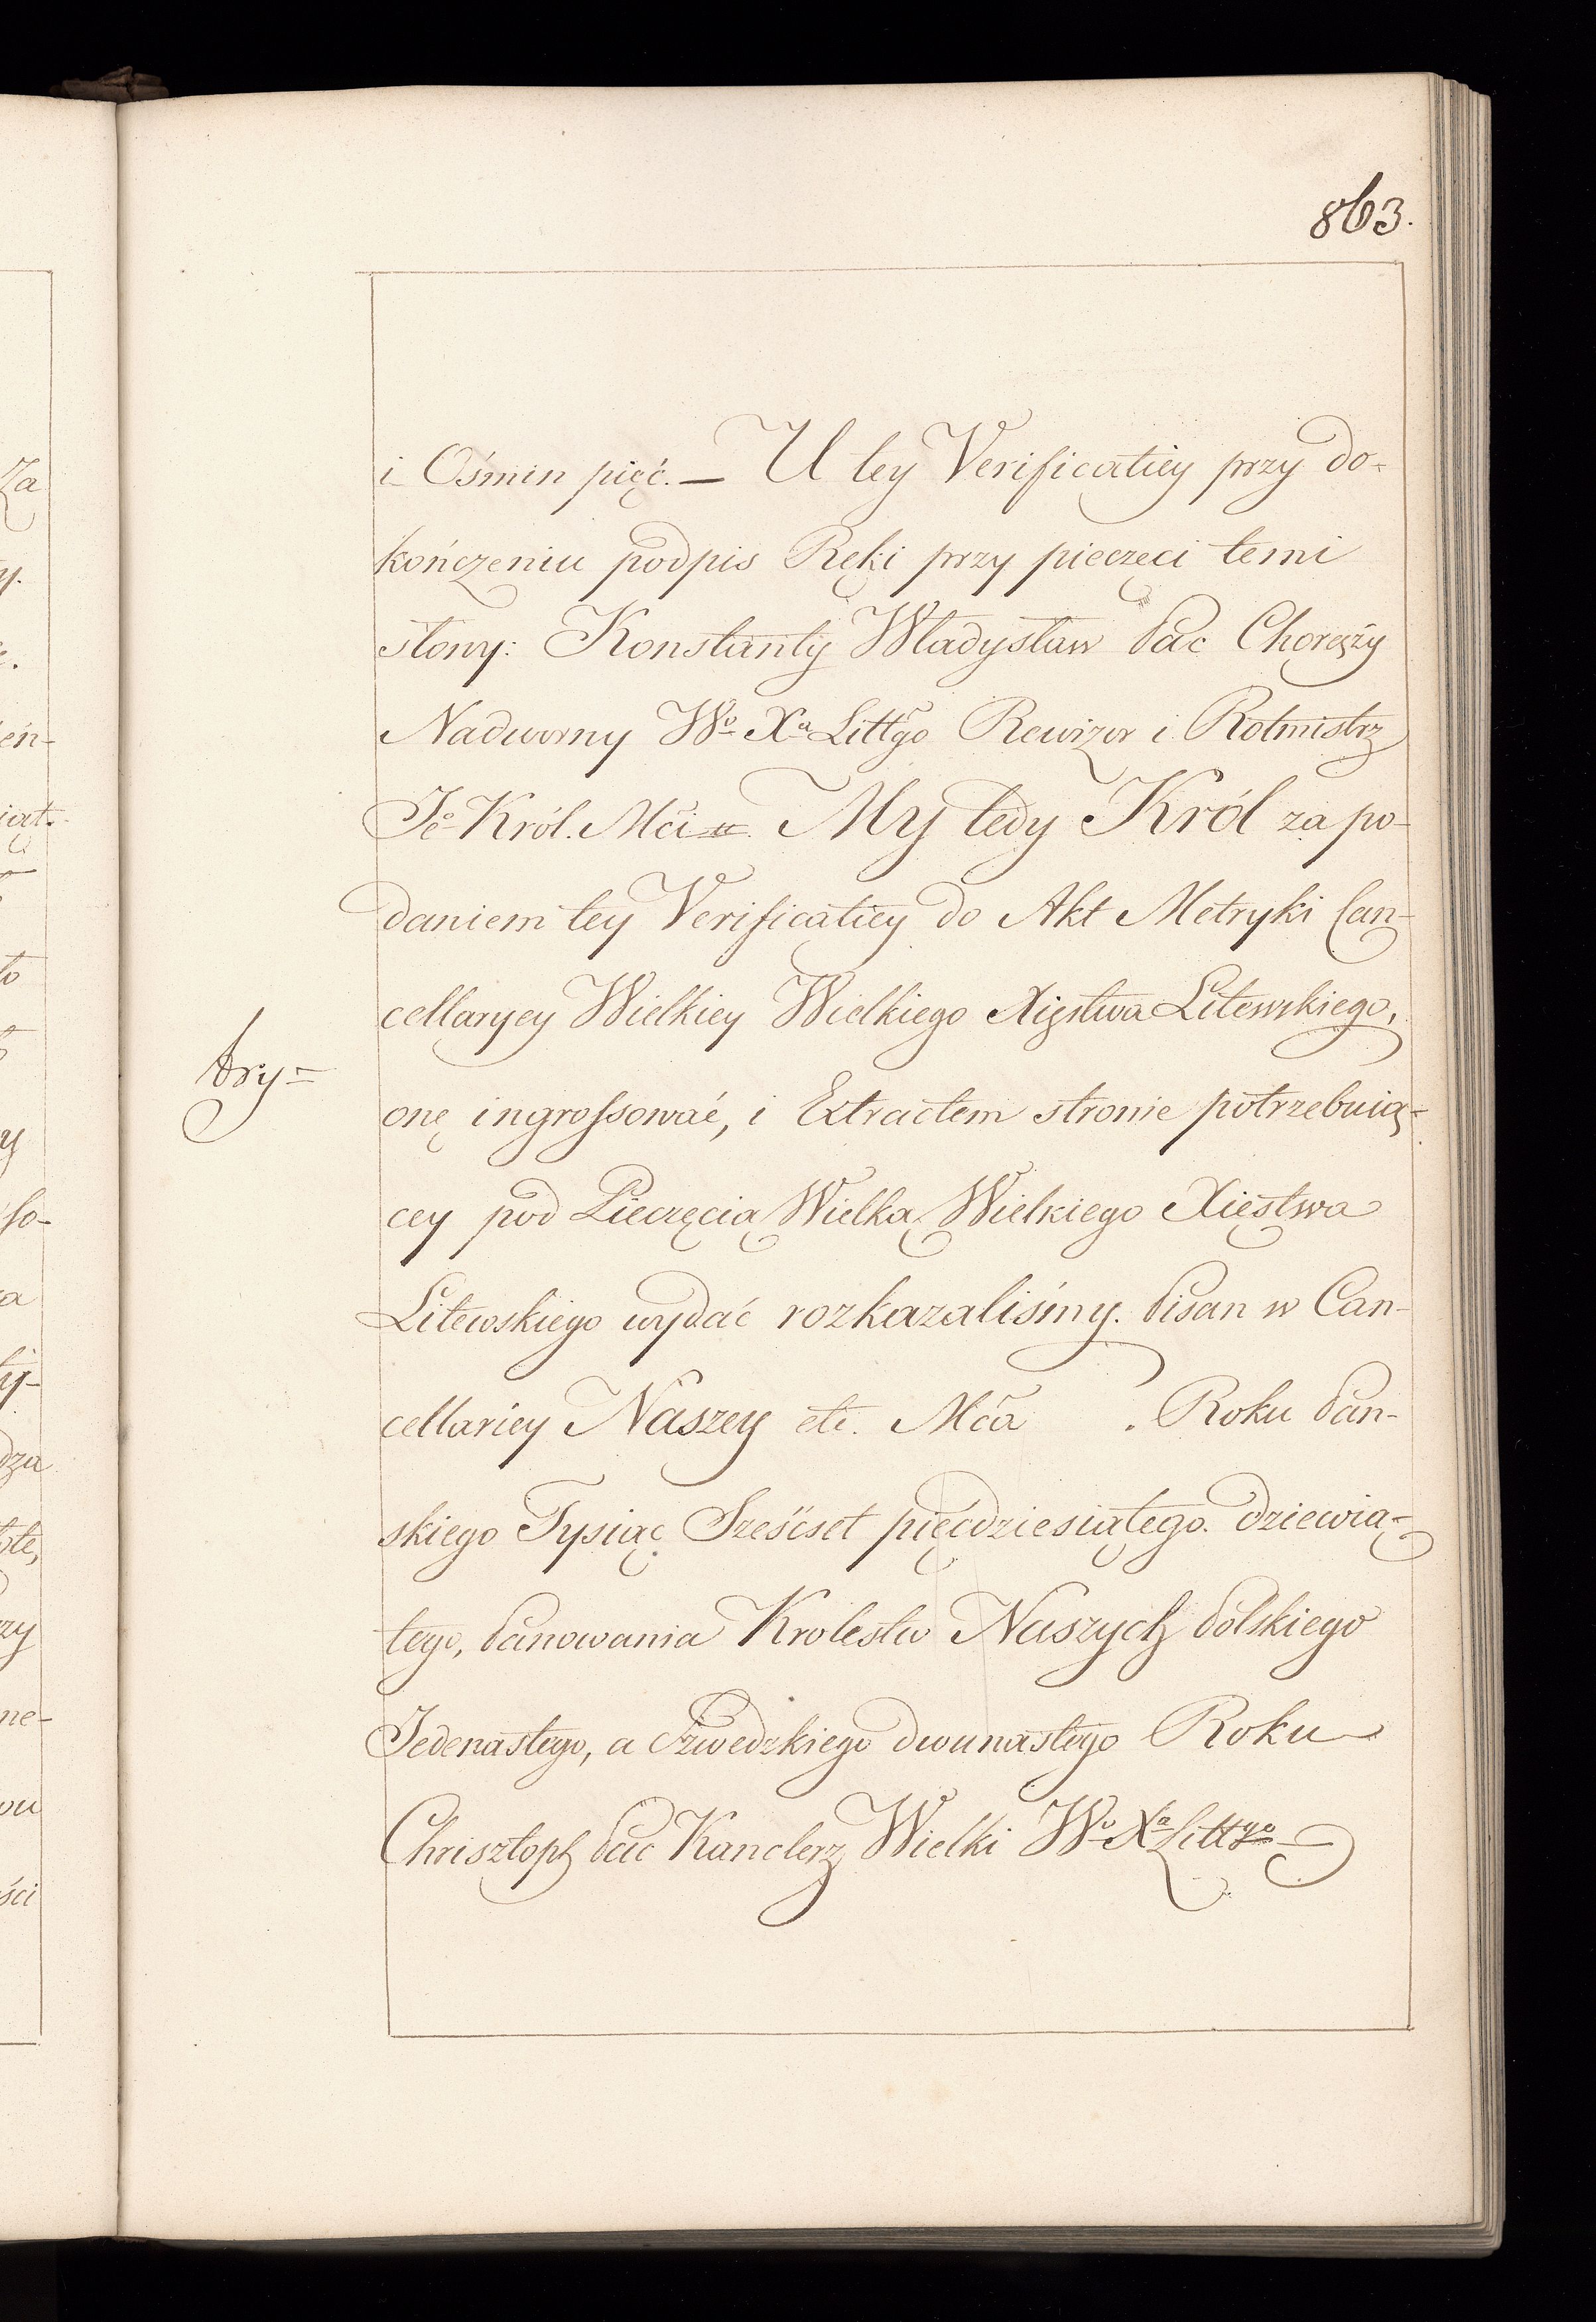 863.
i Ośmin pięć. — U tey Verificatiey przy do-
kończeniu podpis Ręki przy pieczęci temi
słowy: Konstanty Władysław Pac Chorąży
Nadworny Wo Xa Littgo Rewizor i Rotmistrz
Jeo Król. Mći. My tedy Król za po-
daniem tey Verificatiey do Akt Metryki Can-
cellaryey Wielkiey Wielkiego Xięstwa Litewskiego,
onę ingrossować, i Extractem stronie potrzebuią-
cey pod Pieczęcią Wielką Wielkiego Xięstwa
Litewskiego wydać rozkazaliśmy. Pisan w Can-
cellariey Naszey etc. Mća . Roku Pań-
skiego Tysiąc Sześćset pięćdziesiątego dziewią-
tego, Panowania Krolestw Naszych Polskiego
Jedenastego, a Szwedzkiego dwunastego Roku
Chrisztoph Pac Kanclerz Wielki Wo Xa Littgo